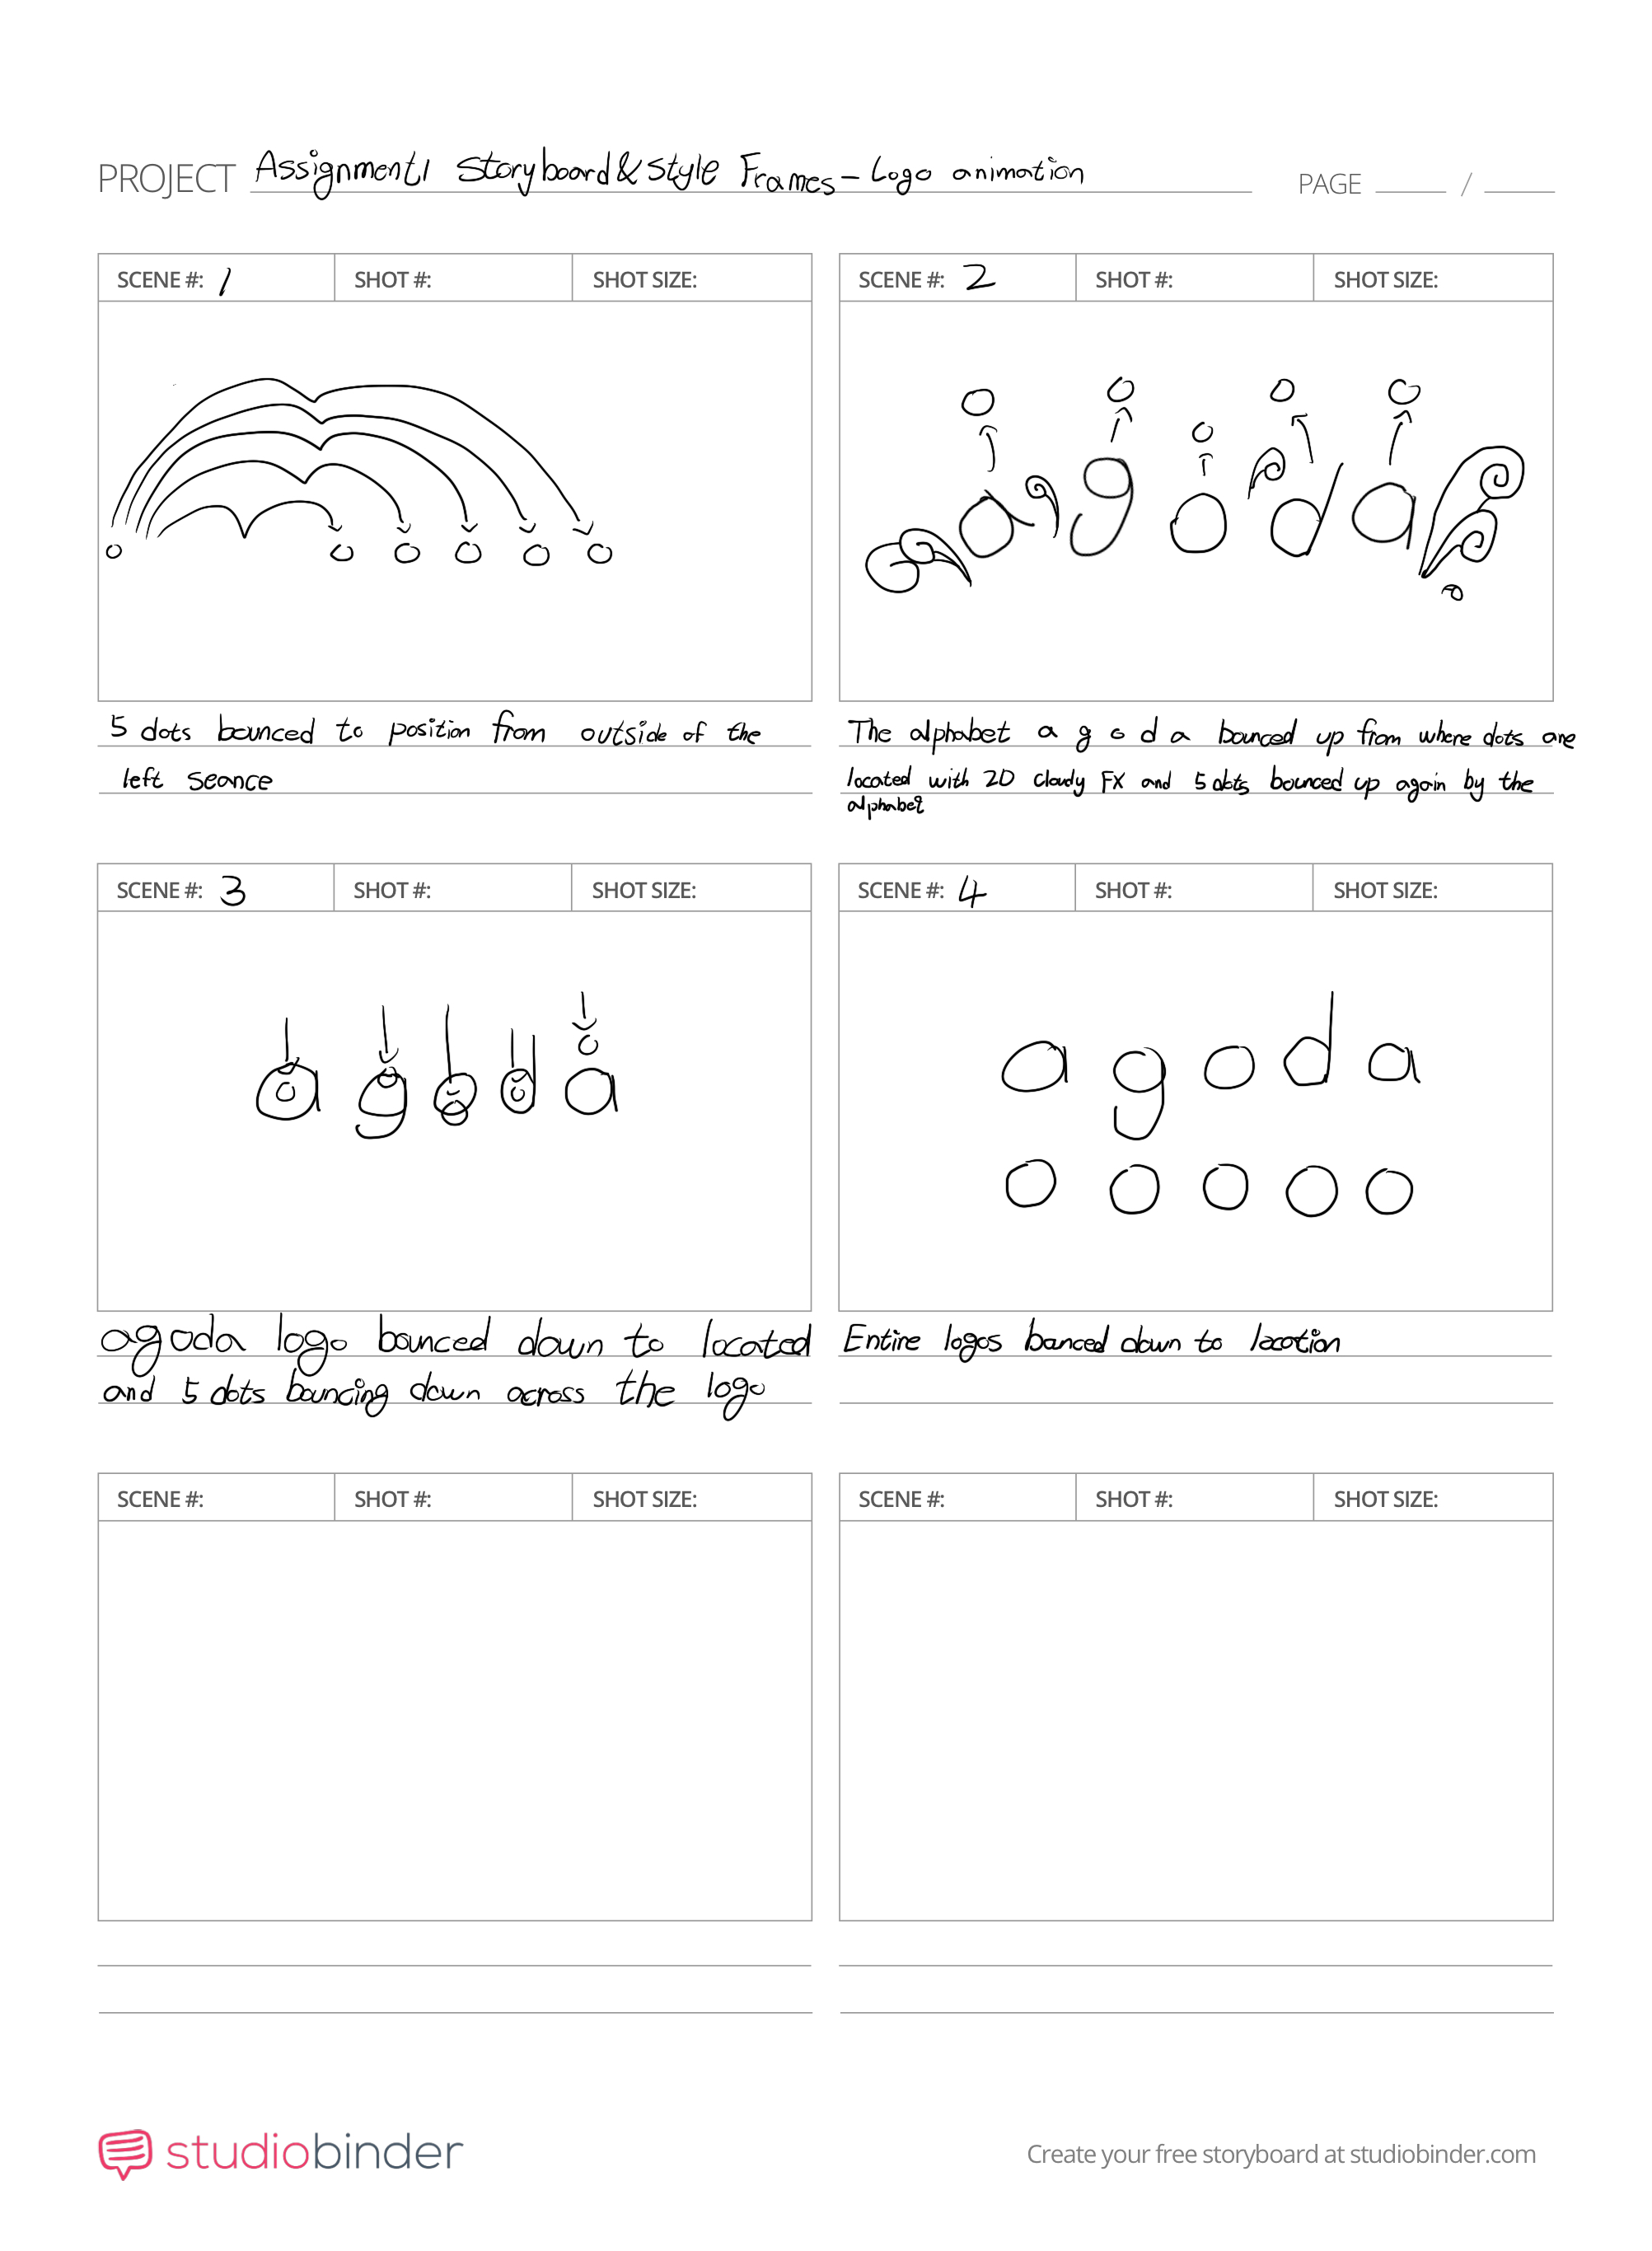 PROJECT Assignment1 Storyboard & Style Frames - Logo animation PAGE ____ / ____
SCENE #: 1 SHOT #: SHOT SIZE:
5 dots bounced to position from outside of the
left seance
SCENE #: 2 SHOT #: SHOT SIZE:
a g o d a
The alphabet a g o d a bounced up from where dots are
located with 2D cloudy FX and 5 dots bounced up again by the
alphabet
SCENE #: 3 SHOT #: SHOT SIZE:
a g o d a
agoda logo bounced down to located
and 5 dots bouncing down across the logo
SCENE #: 4 SHOT #: SHOT SIZE:
a g o d a
Entire logos banced down to location
SCENE #: SHOT #: SHOT SIZE:
SCENE #: SHOT #: SHOT SIZE:
studiobinder
Create your free storyboard at studiobinder.com